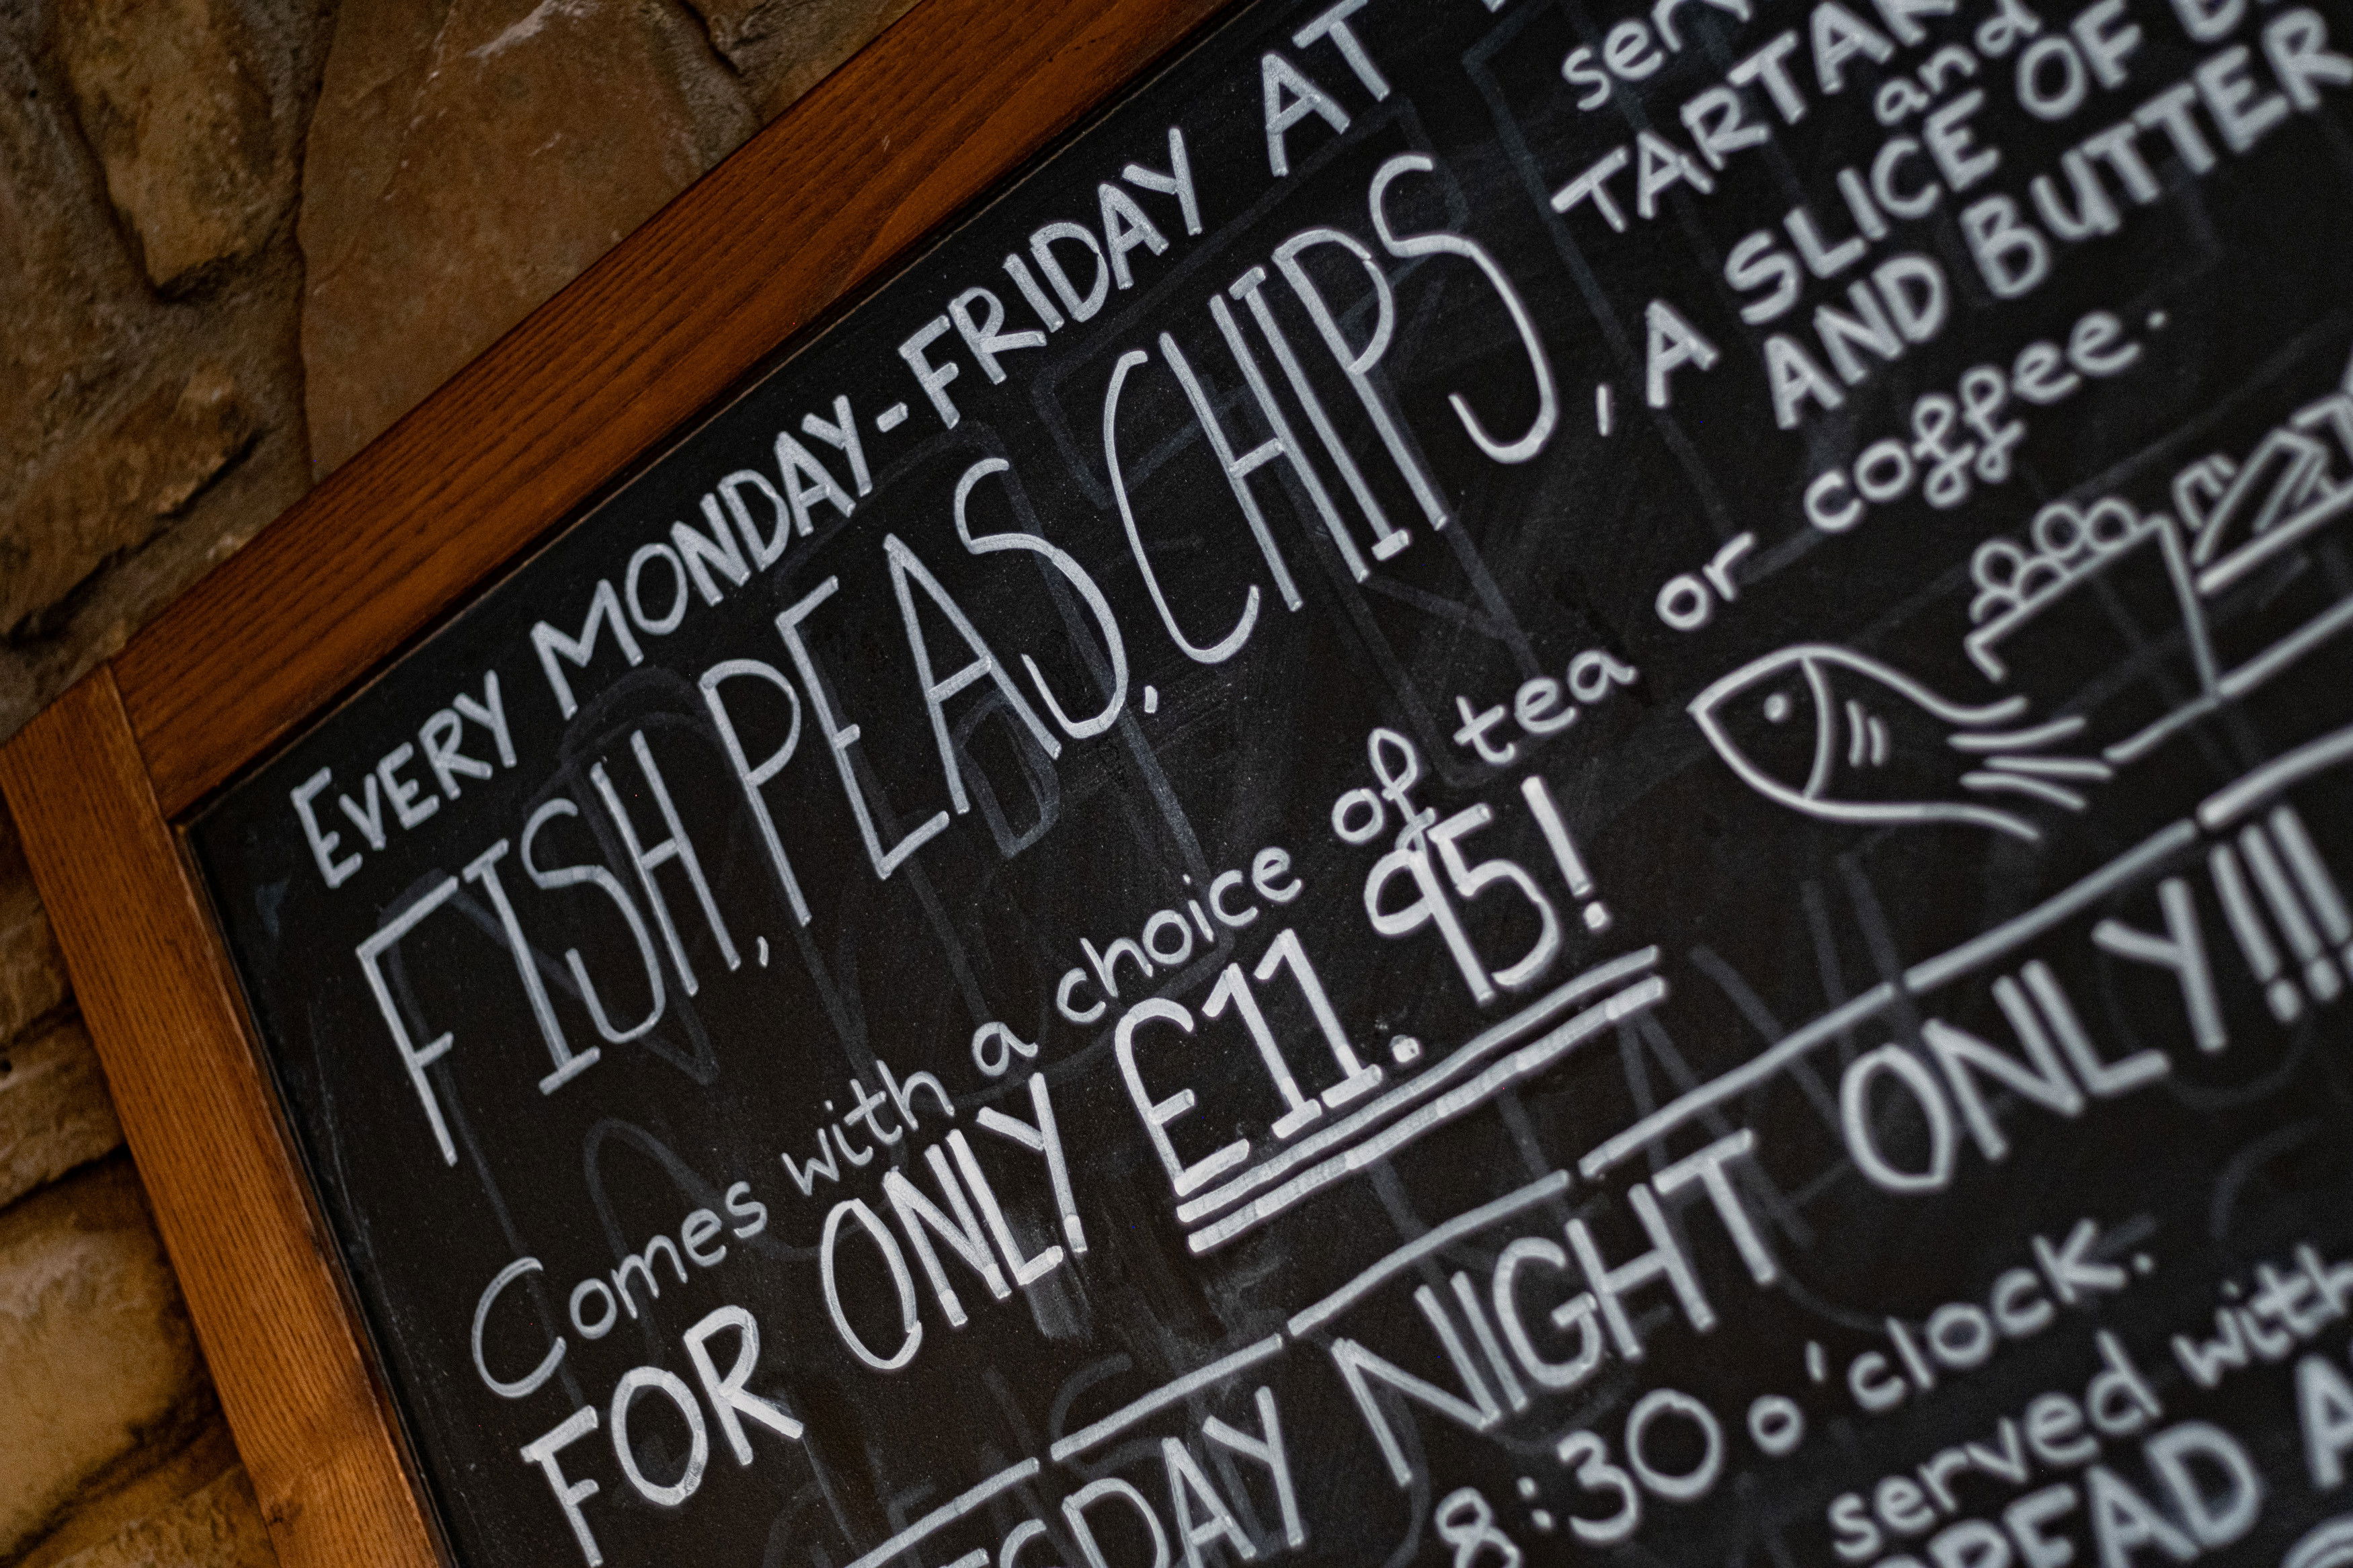 EVERY MONDAY-FRIDAY AT
serv
FISH, PEAS, CHIPS, TARTAR
and
A SLICE OF
AND BUTTER
Comes with a choice of tea or coffee.
FOR ONLY £11.95!
NIGHT ONLY!!!
8:30 o'clock.
served with